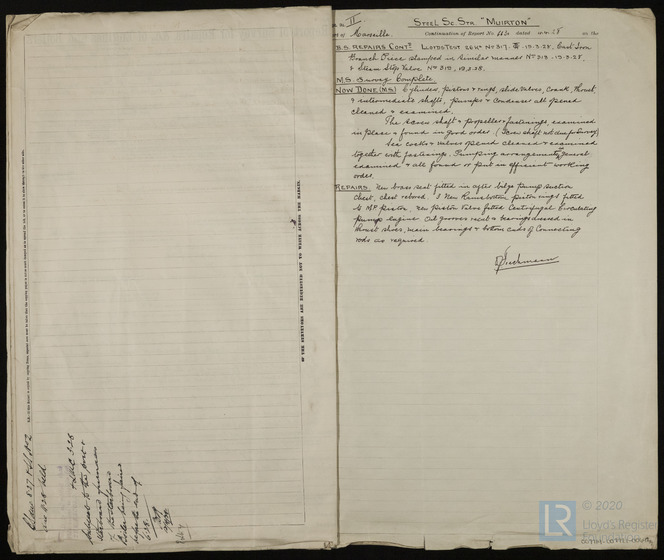 II
Steel Sc Str "MUIRTON"
of Marseille. Continuation of Report No dated 28 on the
B.S. REPAIRS CONTD LLOYDS TEST No 317. 13-3-28. Cast Iron
Branch Piece stamped in similar manner No 318. 13-3-28.
& Steam Stop Valve No 319,
M.S. Survey Complete.
NOW DONE (MS) Cylinders, pistons & rings, slide valves, crank, thrust,
& intermediate shafts, pumps & condenser all opened
cleaned & examined.
The screw shaft & propeller & fastenings, examined
in place & found in good order. (Screw shaft not due for survey)
Sea cocks & valves opened cleaned & examined
together with fastenings. Pumping arrangements general
examined & all found or put in efficient working
order.
REPAIRS. New brass seat fitted in after bilge pump suction
chest, chest rebored. 3 New Ramsbottom piston rings fitted
to M.P. piston, new piston valve fitted Centrifugal Circulating
pump engine. Oil grooves recut & bearings dressed in
thrust shoes, main bearings & bottom ends of Connecting
rods as required.
OF THE SURVEYORS ARE REQUESTED NOT TO WRITE ACROSS THE MARGIN.
Subject to the
© 2020
LR
Lloyd's Register
Foundation